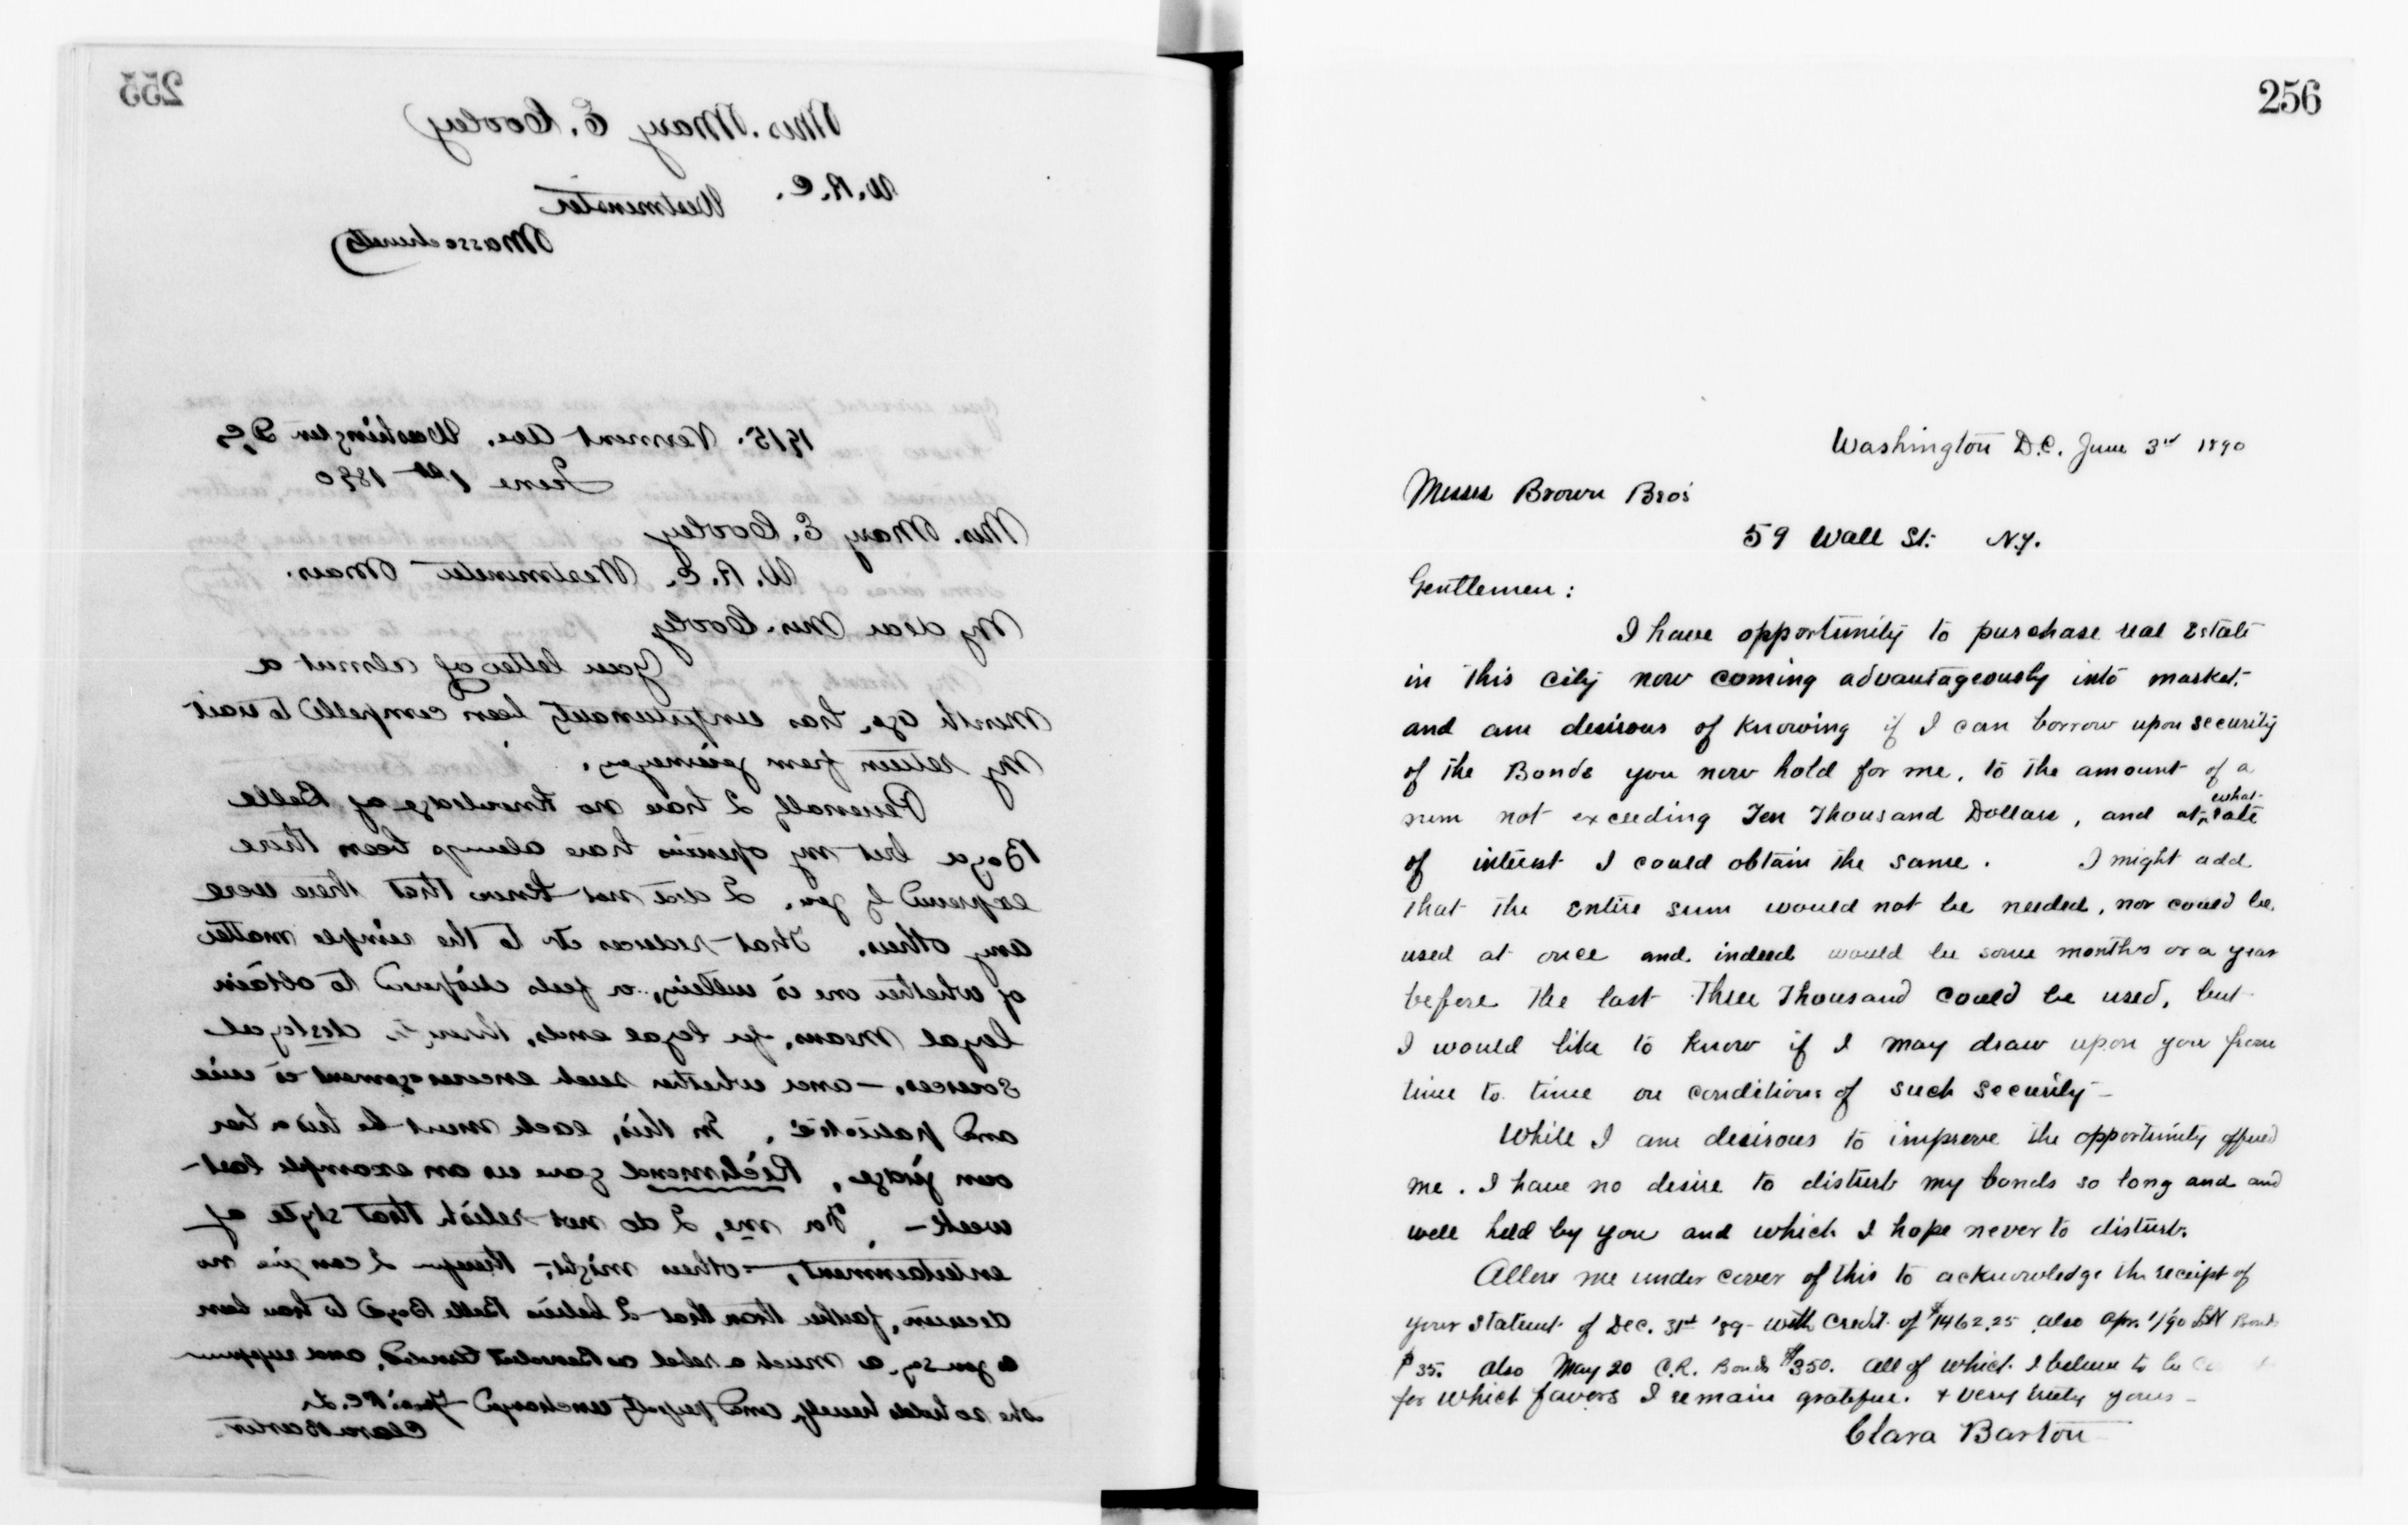 255
Mrs. Mary E. Cooley
W.R.C.
Westminster
Massachusetts
1915. Vermont Ave. Washington D.C.
June 1st 1890
Mrs. Mary E. Cooley
W.R.C. Westminster Mass.
My dear Mrs. Cooly
Your letter of almost a
Month ago, has unfortunately been compelled to wait
My return from journeying.
Personally I have no knowledge of Belle
Boyd but my opinions have always been those
expressed by you. I did not know that there were
any others. That reduces it to the simple matter
of whether one is willing, or feels disposed to obtain
loyal means, for loyal ends, through disloyal
sources. — and whether such encouragement is wise
and patriotic. In this, each must be his or her
own judge. Richmond gave us an example last
week — For me, I do not relish that style of
entertainment, — others might, — therefore I can give no
decision, farther than that I believe Belle Boyd to have been
as you say as much a rebel as Benedict Arnold, and suppose
she so holds herself, and perfectly unchanged
Clara Barton
256
Washington D.C. June 3rd 1890
Messrs Brown Bros'
59 Wall St. N.Y.
Gentlemen:
I have opportunity to purchase real Estate
in this city now coming advantageously into market,
and am desirous of knowing if I can borrow upon security
of the Bonds you now hold for me, to the amount of a
what
sum not exceeding Ten Thousand Dollars, and at rate
of interest I could obtain the same. I might add
that the entire sum would not be needed, nor could be
used at once and indeed would be some months or a year
before the last Three Thousand could be used, but
I would like to know if I may draw upon you from
time to time on conditions of such security —
While I am desirous to improve the opportunity offered
me. I have no desire to disturb my bonds so long and and
well held by you and which I hope never to disturb.
Allow me under cover of this to acknowledge the receipt of
your statemt of Dec. 31st '89 — with Credit of $1462.25 also Apr. 1/90 Bonds
$35. also May 20 C.R. Bonds $350. all of which I believe to be
for which favors I remain grateful. & very truly yours —
Clara Barton